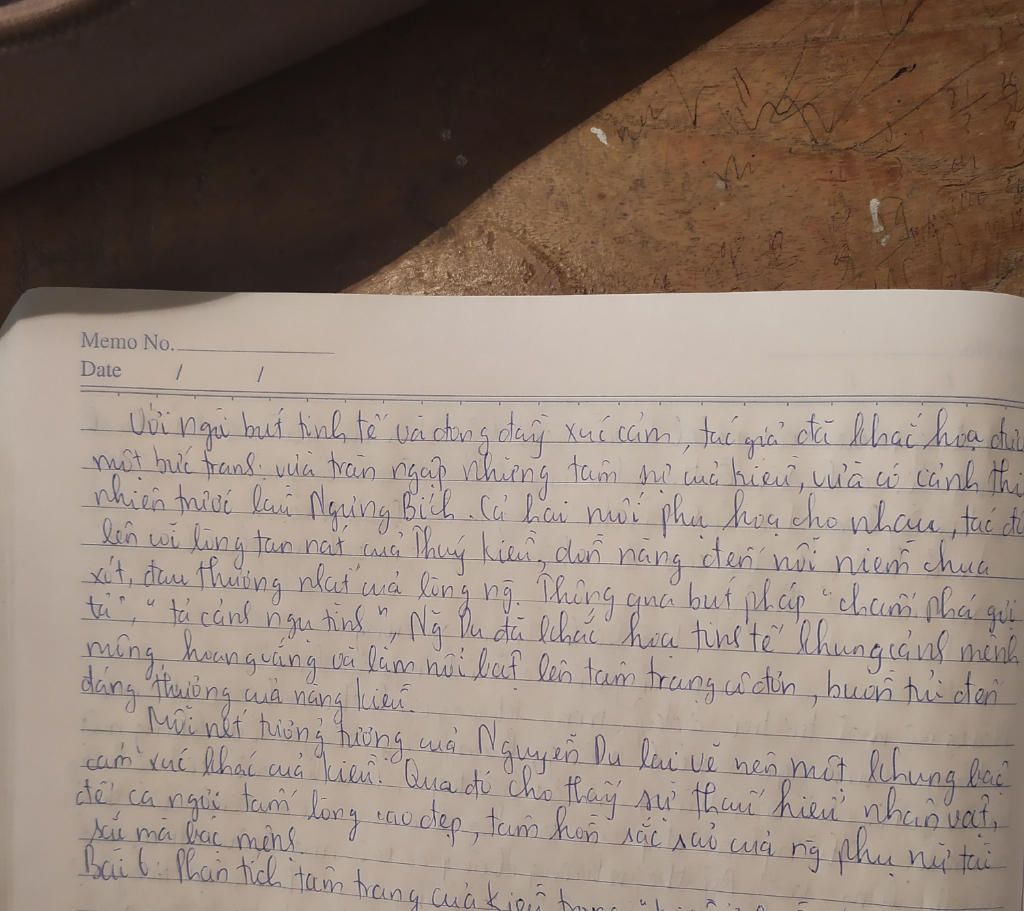 Memo No.
Date / /
Với ngòi bút tinh tế và dòng đầy xúc cảm, tác giả đã khắc họa
một bức tranh vừa tràn ngập những tâm sự của Kiều, vừa có cảnh
nhiên trước lầu Ngưng Bích. Cả hai mới phụ họa cho nhau, tác
lên cõi lòng tan nát của Thuý Kiều, dồn nàng đến nỗi niềm chua
xót, đau thương nhất của lòng ng. Thông qua bút pháp "chấm phá gợi
tả", "tả cảnh ngụ tình", Ng Du đã khắc họa tinh tế khung cảnh mênh
mông, hoang vắng và làm nổi bật lên tâm trạng cô đơn, buồn tủi đến
đáng thương của nàng Kiều.
Mỗi nét tưởng tượng của Nguyễn Du lại vẽ nên một khung bậc
cảm xúc khác của Kiều. Qua đó cho thấy sự thấu hiểu nhân vật,
để ca ngợi tấm lòng cao đẹp, tâm hồn sắc sảo của ng phụ nữ tài
sắc mà bạc mệnh
Bài 6: Phân tích tâm trạng của Kiều trong